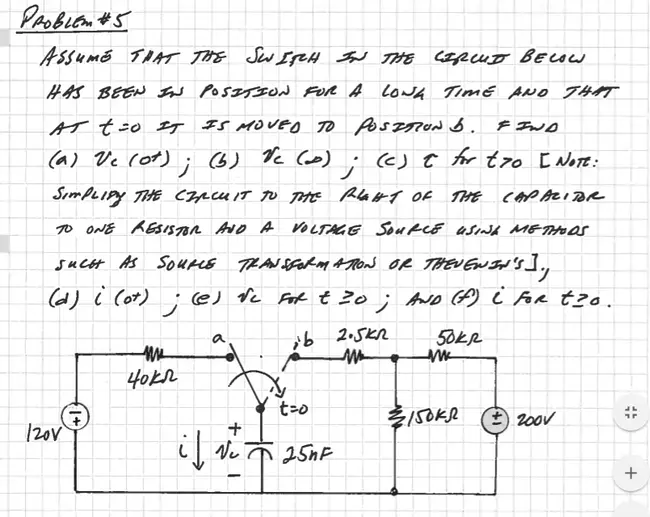 PROBLEM #5
ASSUME THAT THE SWITCH IN THE CIRCUIT BELOW
HAS BEEN IN POSITION FOR A LONG TIME AND THAT
AT t=0 IT IS MOVED TO POSITION b. FIND
(a) Vc(0+); (b) Vc(∞); (c) τ for t>0 [NOTE:
SIMPLIFY THE CIRCUIT TO THE RIGHT OF THE CAPACITOR
TO ONE RESISTOR AND A VOLTAGE SOURCE USING METHODS
SUCH AS SOURCE TRANSFORMATION OR THEVENIN'S];
(d) i(0+); (e) Vc FOR t≥0; AND (f) i FOR t≥0.
a b 2.5KΩ 50KΩ
40KΩ
t=0
120V ∓ 150KΩ ± 200V
i ↓ + Vc - 25nF